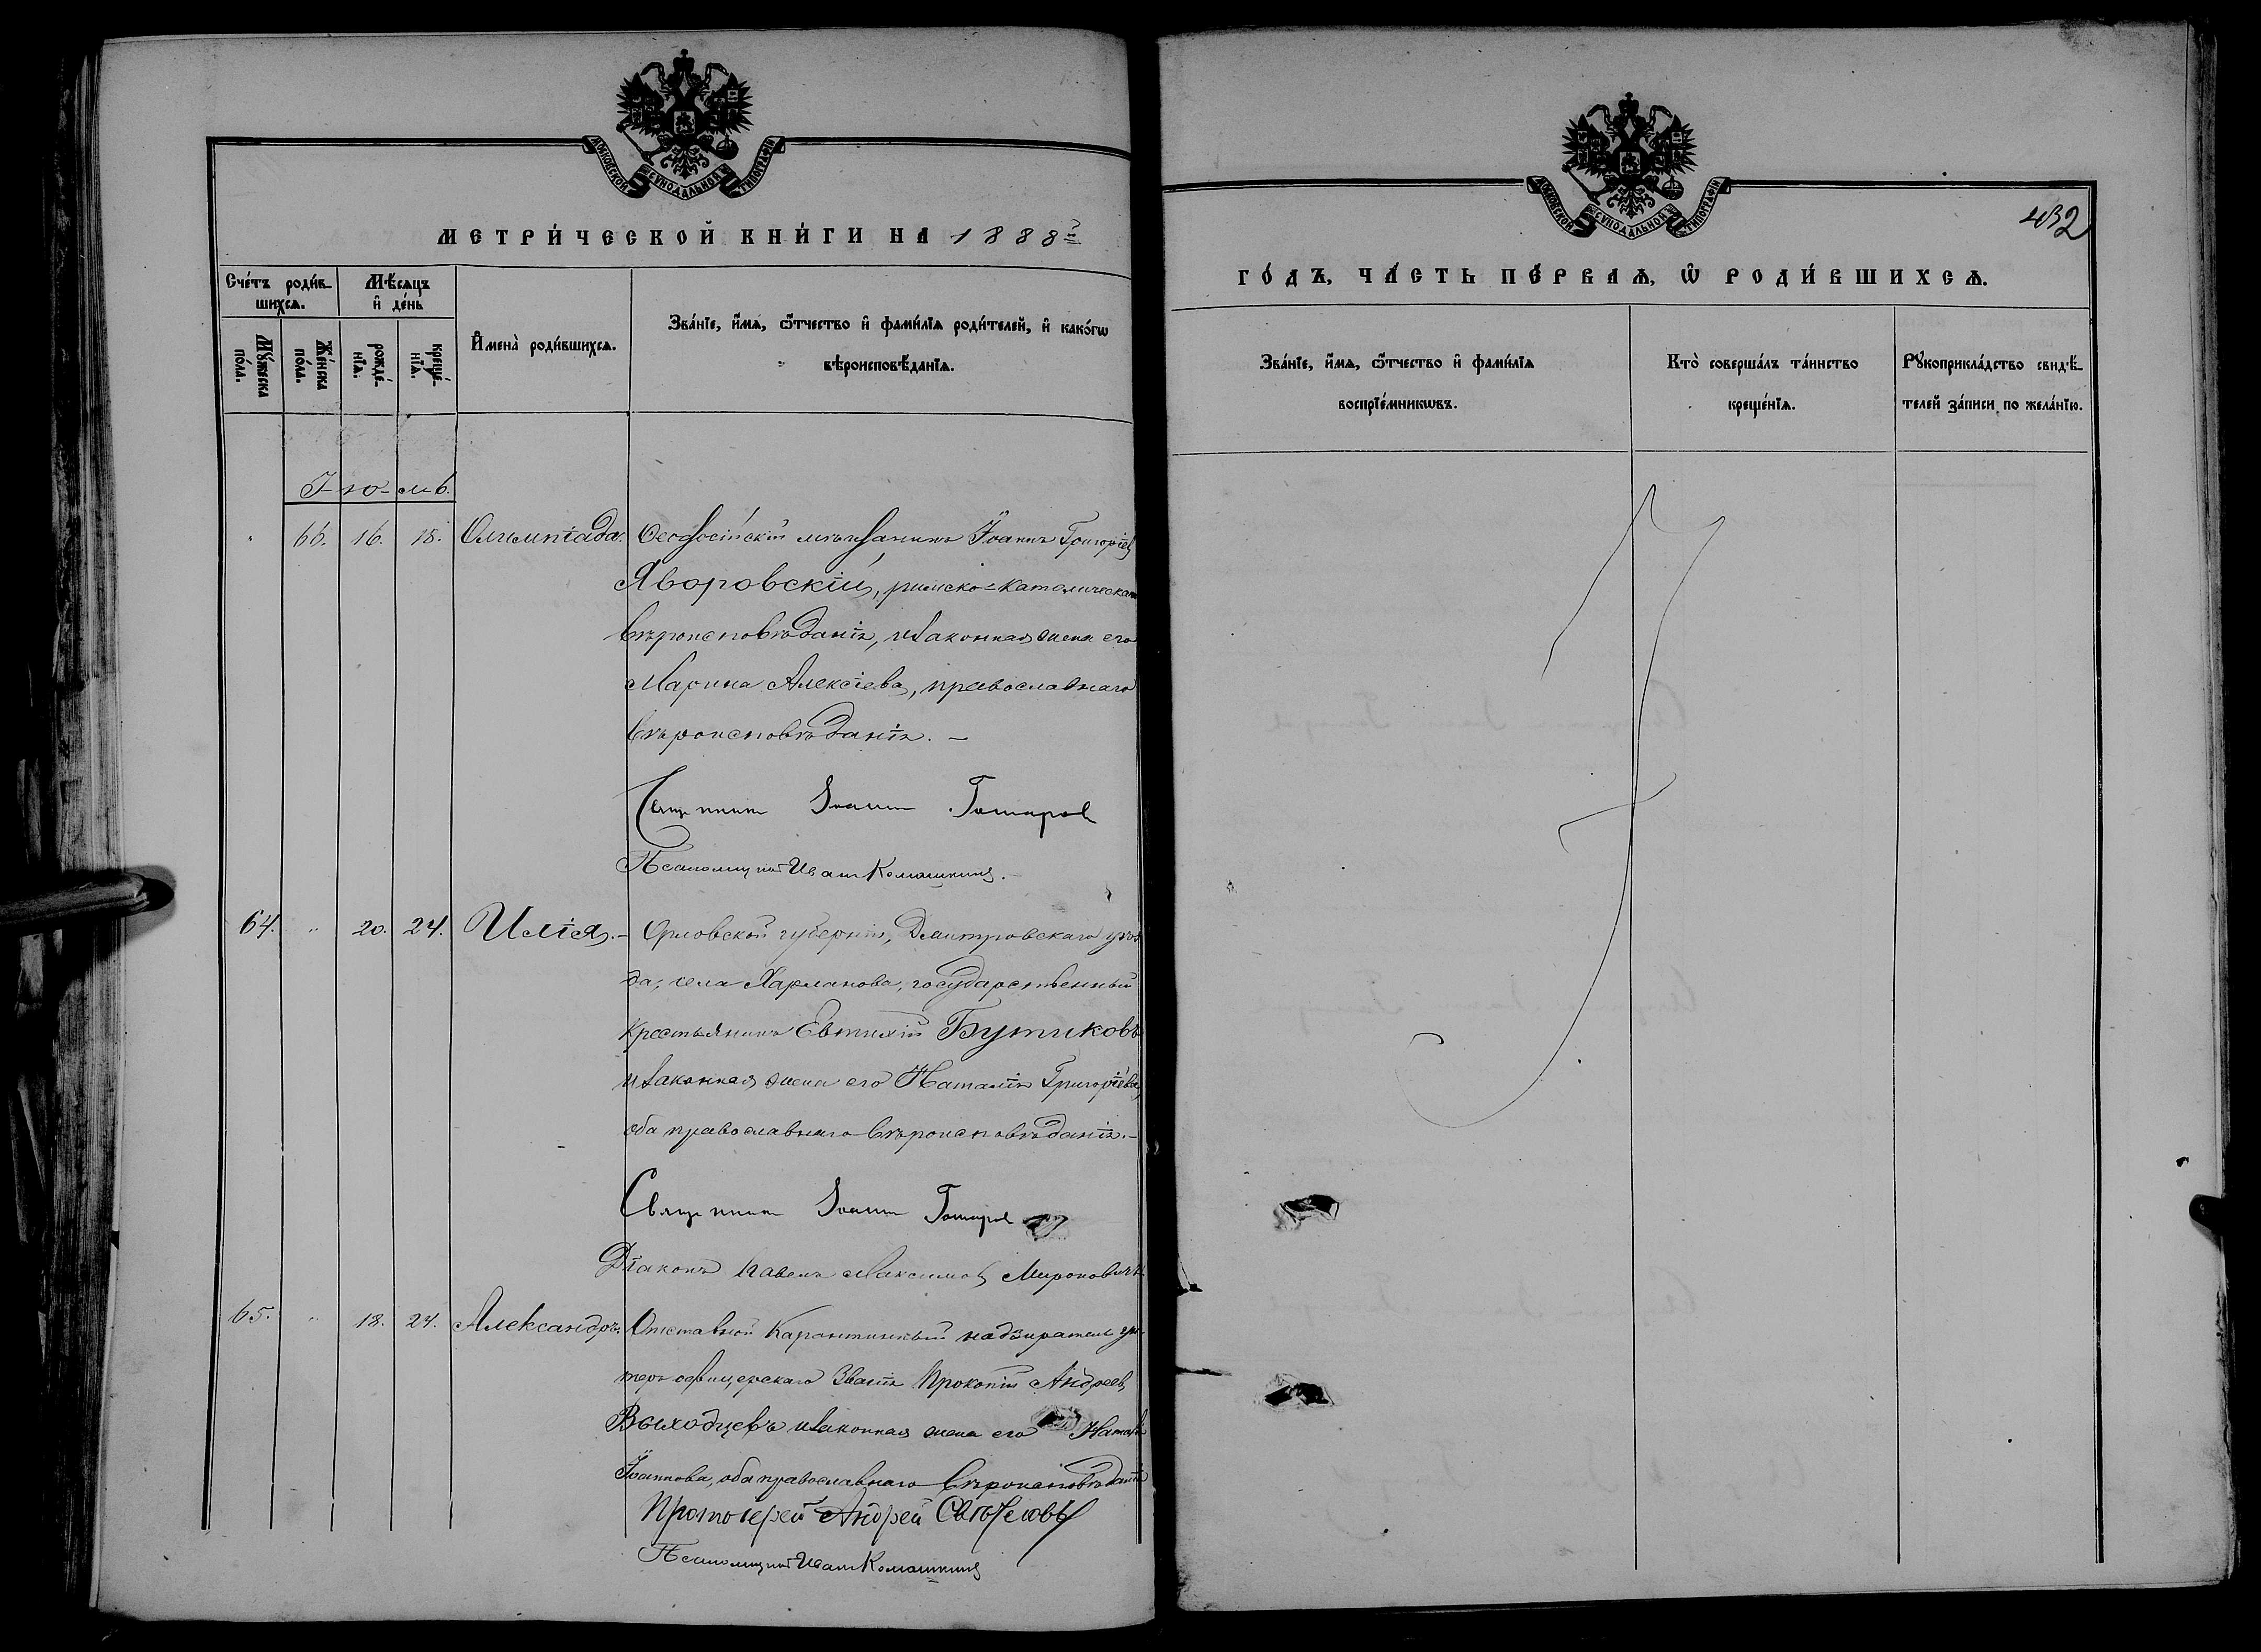 МОСКОВСКОЙ СѴНОДАЛЬНОЙ ТИПОГРАФІИ
МЕТРИ́ЧЕСКОЙ КНИ́ГИ НА 1888й
Сче́тъ роди́в-
шихсѧ.
Мѣ́сѧцъ
и҆ де́нь
Мꙋ́жеска
по́ла.
Же́нска
по́ла.
рожде́-
нїѧ.
креще́-
нїѧ.
И҆мена̀ роди́вшихсѧ.
Зва́нїе, и҆́мѧ, ѻ҆́тчество и҆ фами́лїѧ роди́телей, и҆ како́гѡ
вѣроисповѣ́данїѧ.
І-ю-ль.
66. 16. 18. Олимпіада. Ѳеодосійскій мѣщанинъ Іоаннъ Григоріевъ
Яворовскій, римско-католическаго
вѣроисповѣданія, и законная жена его
Марина Алексіева, православнаго
вѣроисповѣданія. –
Священникъ Іоаннъ
Псаломщикъ Иванъ
64. " 20. 24. Илія. – Орловской губерніи, Дмитровскаго уѣз-
да, села Харланова, государственный
крестьянинъ Евтихій Бутиковъ
и законная жена его Наталія Григоріева,
оба православнаго вѣроисповѣданія. –
Священникъ Іоаннъ
Діаконъ Павелъ Максимовъ Мироновичъ.
65. " 18. 24. Александръ. Отставной Карантинный надзиратель ун-
теръ офицерскаго званія Прокопій Андреевъ
Выходцевъ и законная жена его Наталія
Іоаннова, оба православнаго вѣроисповѣданія
Протоіерей Андрей
Псаломщикъ Иванъ
МОСКОВСКОЙ СѴНОДАЛЬНОЙ ТИПОГРАФІИ
432
ГО́ДЪ, ЧА́СТЬ ПЕ́РВАѦ, Ѡ҆ РОДИ́ВШИХСѦ.
Зва́нїе, и҆́мѧ, ѻ҆́тчество и҆ фами́лїѧ
воспрїе́мникѡвъ.
Кто̀ соверша́лъ та́инство
креще́нїѧ.
Рꙋкоприкла́дство свидѣ́-
телей за́писи по жела́нїю.